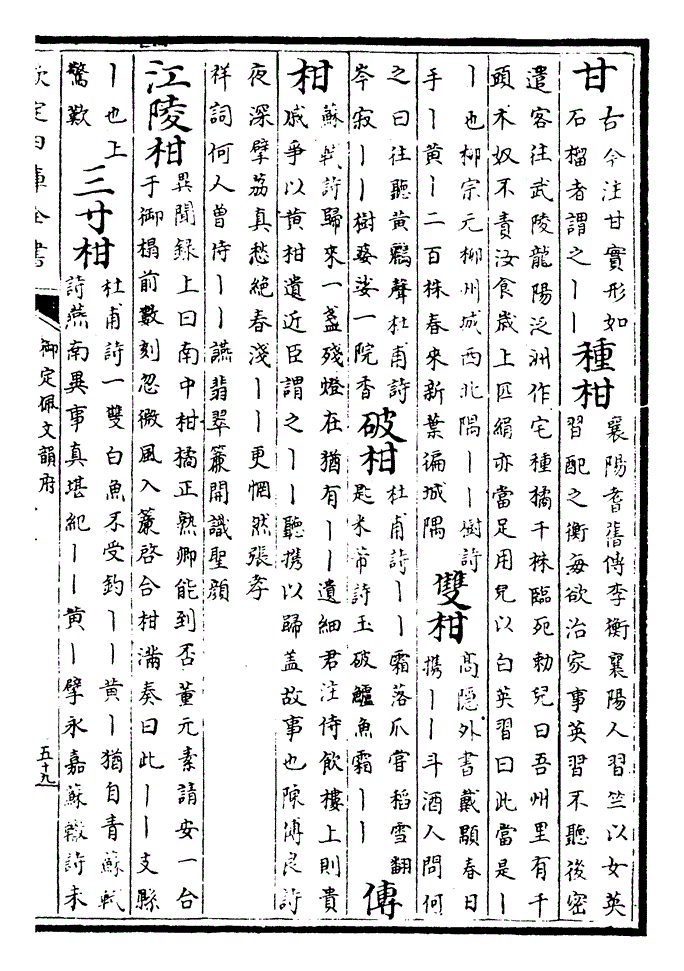 甘
古今注甘實形如
石榴者謂之丨丨
種柑
襄陽耆舊傳李衡襄陽人習竺以女英
習配之衡每欲治家事英習不聽後密
遣客往武陵龍陽泛洲作宅種橘千株臨死勅兒曰吾州里有千
頭木奴不責汝食歲上匹絹亦當足用兒以白英習曰此當是丨
丨也柳宗元柳州城西北隅丨丨樹詩
手丨黃丨二百株春來新葉徧城隅
雙柑
高隱外書戴顒春日
攜丨丨斗酒人問何
之曰往聽黃鸝聲杜甫詩
岑寂丨丨樹婆娑一院香
破柑
杜甫詩丨丨霜落爪嘗稻雪翻
匙米芾詩玉破鱸魚霜丨丨
傳
柑
蘇軾詩歸來一盞殘燈在猶有丨丨遺細君注侍飲樓上則貴
戚爭以黃柑遺近臣謂之丨丨聽攜以歸蓋故事也陳傅良詩
夜深擘荔真愁絕春淺丨丨更惘然張孝
祥詞何人曾侍丨丨讌翡翠簾開識聖顔
江陵柑
異聞録上曰南中柑橘正熟卿能到否董元素請安一合
于御榻前數刻忽微風入簾啓合柑滿奏曰此丨丨支縣
丨也上
驚歎
三寸柑
杜甫詩一雙白魚不受釣丨丨黃丨猶自青蘇軾
詩燕南異事真堪紀丨丨黃丨擘永嘉蘇轍詩未
欽定四庫全書
御定佩文韻府
五十九